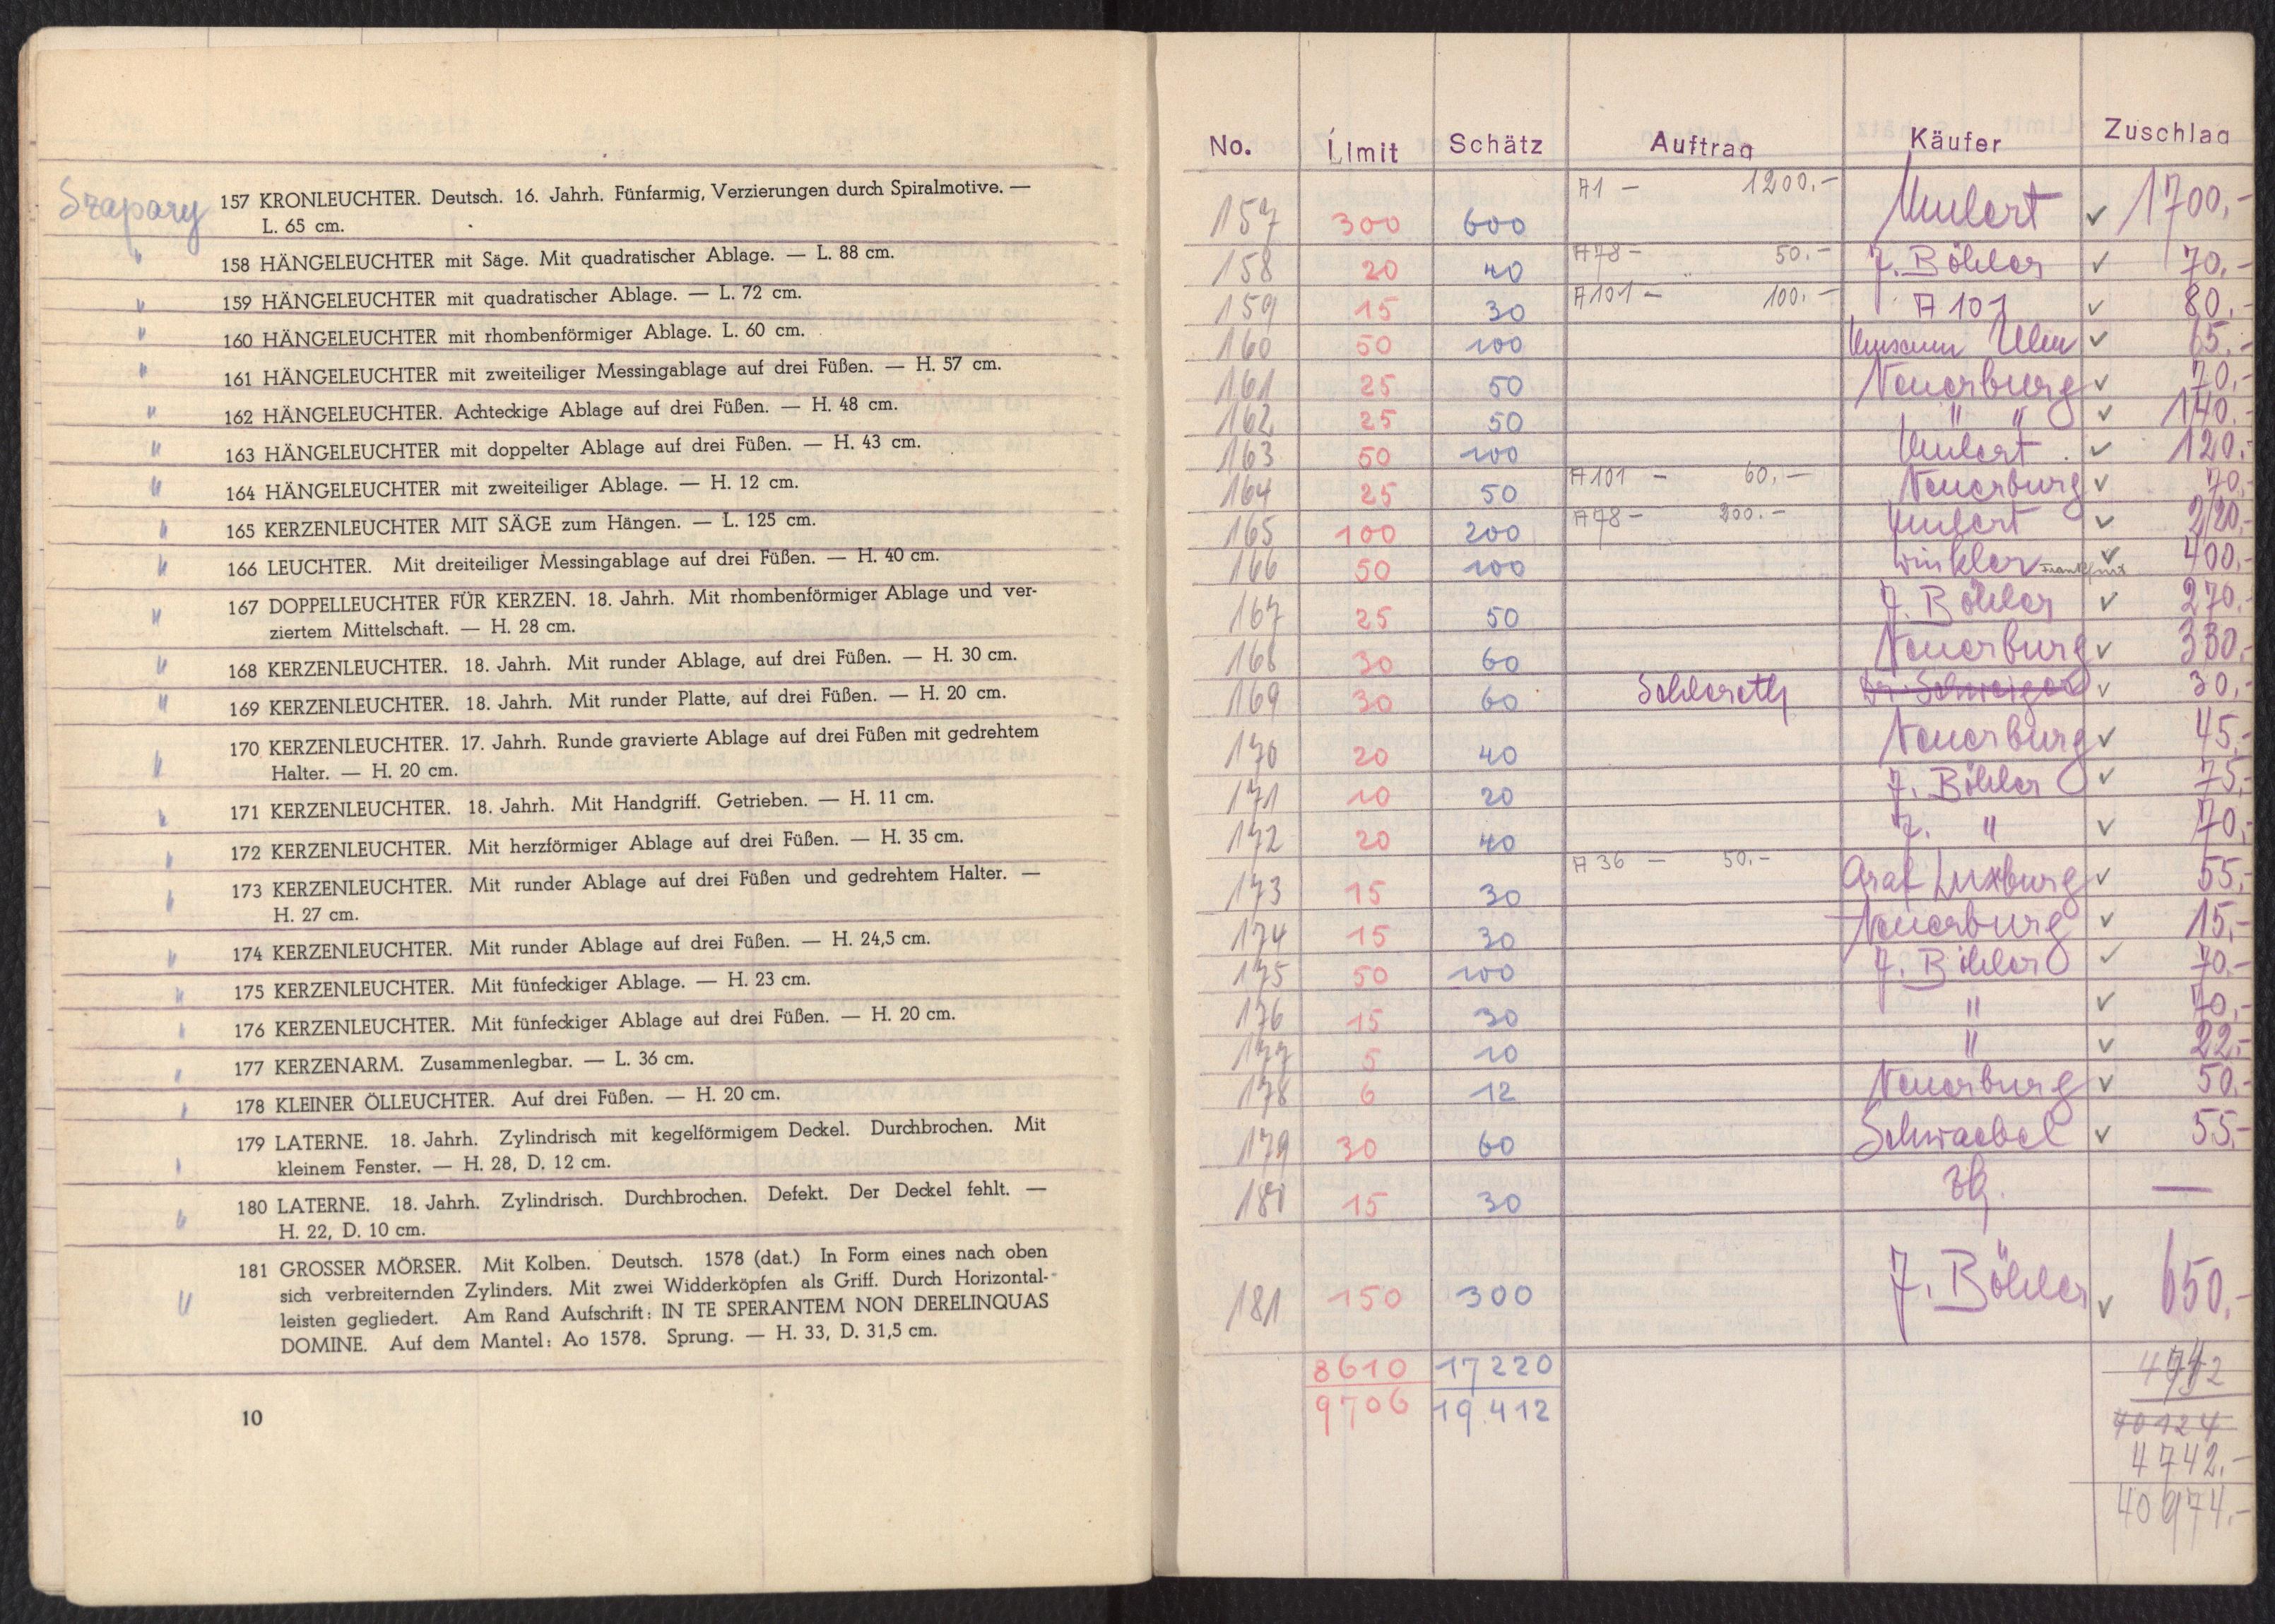 Szapary 157 KRONLEUCHTER. Deutsch. 16. Jahrh. Fünfarmig, Verzierungen durch Spiralmotive. —
L. 65 cm.
" 158 HÄNGELEUCHTER mit Säge. Mit quadratischer Ablage. — L. 88 cm.
" 159 HÄNGELEUCHTER mit quadratischer Ablage. — L. 72 cm.
" 160 HÄNGELEUCHTER mit rhombenförmiger Ablage. L. 60 cm.
" 161 HÄNGELEUCHTER mit zweiteiliger Messingablage auf drei Füßen. — H. 57 cm.
" 162 HÄNGELEUCHTER. Achteckige Ablage auf drei Füßen. — H. 48 cm.
" 163 HÄNGELEUCHTER mit doppelter Ablage auf drei Füßen. — H. 43 cm.
" 164 HÄNGELEUCHTER mit zweiteiliger Ablage. — H. 12 cm.
" 165 KERZENLEUCHTER MIT SÄGE zum Hängen. — L. 125 cm.
" 166 LEUCHTER. Mit dreiteiliger Messingablage auf drei Füßen. — H. 40 cm.
" 167 DOPPELLEUCHTER FÜR KERZEN. 18. Jahrh. Mit rhombenförmiger Ablage und ver-
ziertem Mittelschaft. — H. 28 cm.
" 168 KERZENLEUCHTER. 18. Jahrh. Mit runder Ablage, auf drei Füßen. — H. 30 cm.
" 169 KERZENLEUCHTER. 18. Jahrh. Mit runder Platte, auf drei Füßen. — H. 20 cm.
" 170 KERZENLEUCHTER. 17. Jahrh. Runde gravierte Ablage auf drei Füßen mit gedrehtem
Halter. — H. 20 cm.
" 171 KERZENLEUCHTER. 18. Jahrh. Mit Handgriff. Getrieben. — H. 11 cm.
" 172 KERZENLEUCHTER. Mit herzförmiger Ablage auf drei Füßen. — H. 35 cm.
" 173 KERZENLEUCHTER. Mit runder Ablage auf drei Füßen und gedrehtem Halter. —
H. 27 cm.
" 174 KERZENLEUCHTER. Mit runder Ablage auf drei Füßen. — H. 24,5 cm.
" 175 KERZENLEUCHTER. Mit fünfeckiger Ablage. — H. 23 cm.
" 176 KERZENLEUCHTER. Mit fünfeckiger Ablage auf drei Füßen. — H. 20 cm.
" 177 KERZENARM. Zusammenlegbar. — L. 36 cm.
" 178 KLEINER ÖLLEUCHTER. Auf drei Füßen. — H. 20 cm.
" 179 LATERNE. 18. Jahrh. Zylindrisch mit kegelförmigem Deckel. Durchbrochen. Mit
kleinem Fenster. — H. 28, D. 12 cm.
" 180 LATERNE. 18. Jahrh. Zylindrisch. Durchbrochen. Defekt. Der Deckel fehlt. —
H. 22, D. 10 cm.
" 181 GROSSER MÖRSER. Mit Kolben. Deutsch. 1578 (dat.) In Form eines nach oben
sich verbreiternden Zylinders. Mit zwei Widderköpfen als Griff. Durch Horizontal-
leisten gegliedert. Am Rand Aufschrift: IN TE SPERANTEM NON DERELINQUAS
DOMINE. Auf dem Mantel: Ao 1578. Sprung. — H. 33, D. 31,5 cm.
10
No. Limit Schätz Auftrag Käufer Zuschlag
157 300 600 A1 — 1200.— Mulert ✓ 1700.-
158 20 40 A78 — 50.— J. Böhler ✓ 70.-
159 15 30 A101 — 100.— A 101 ✓ 80.-
160 50 100 Museum Ulm ✓ 65.-
161 25 50 Neuerburg ✓ 70.-
162 25 50 " " ✓ 140.-
163 50 100 Mulert ✓ 120.-
164 25 50 A101 — 60.— Neuerburg ✓ 70.-
165 100 200 A78 — 200.— Mulert ✓ 220.-
166 50 100 Winkler Frankfurt ✓ 400.-
167 25 50 J. Böhler ✓ 270.-
168 30 60 Neuerburg ✓ 330.-
169 30 60 Schlereth ✓ 30.-
170 20 40 Neuerburg ✓ 45.-
171 10 20 J. Böhler ✓ 75.-
172 20 40 J. " ✓ 70.-
173 15 30 A 36 — 50.— Graf Luxburg ✓ 55.-
174 15 30 Neuerburg ✓ 15.-
175 50 100 J. Böhler ✓ 70.-
176 15 30 " ✓ 70.-
177 5 10 " ✓ 22.-
178 6 12 Neuerburg ✓ 50.-
179 30 60 Schwaebel ✓ 55.-
180 15 30 —
181 150 300 J. Böhler ✓ 650.-
8610 17220
9706 19.412
40124
4742.-
40974.-